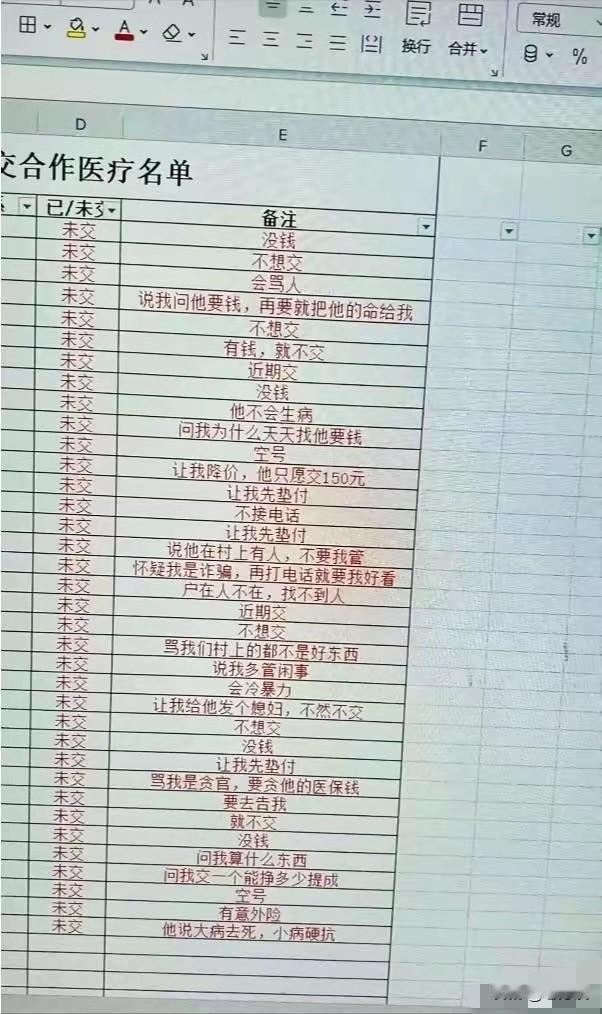 常规
换行
合并
%
D
E
F
G
交合作医疗名单
已/未交
备注
未交
没钱
未交
不想交
未交
会骂人
未交
说我问他要钱，再要就把他的命给我
未交
不想交
未交
有钱，就不交
未交
近期交
未交
没钱
未交
他不会生病
未交
问我为什么天天找他要钱
未交
空号
未交
让我降价，他只愿交150元
未交
让我先垫付
未交
不接电话
未交
让我先垫付
未交
说他在村上有人，不要我管
未交
怀疑我是诈骗，再打电话就要我好看
未交
户在人不在，找不到人
未交
近期交
未交
不想交
未交
骂我们村上的都不是好东西
未交
说我多管闲事
未交
会冷暴力
未交
让我给他发个媳妇，不然不交
未交
不想交
未交
没钱
未交
让我先垫付
未交
骂我是贪官，要贪他的医保钱
未交
要去告我
未交
就不交
未交
没钱
未交
问我算什么东西
未交
问我交一个能挣多少提成
未交
空号
未交
有意外险
未交
他说大病去死，小病硬抗